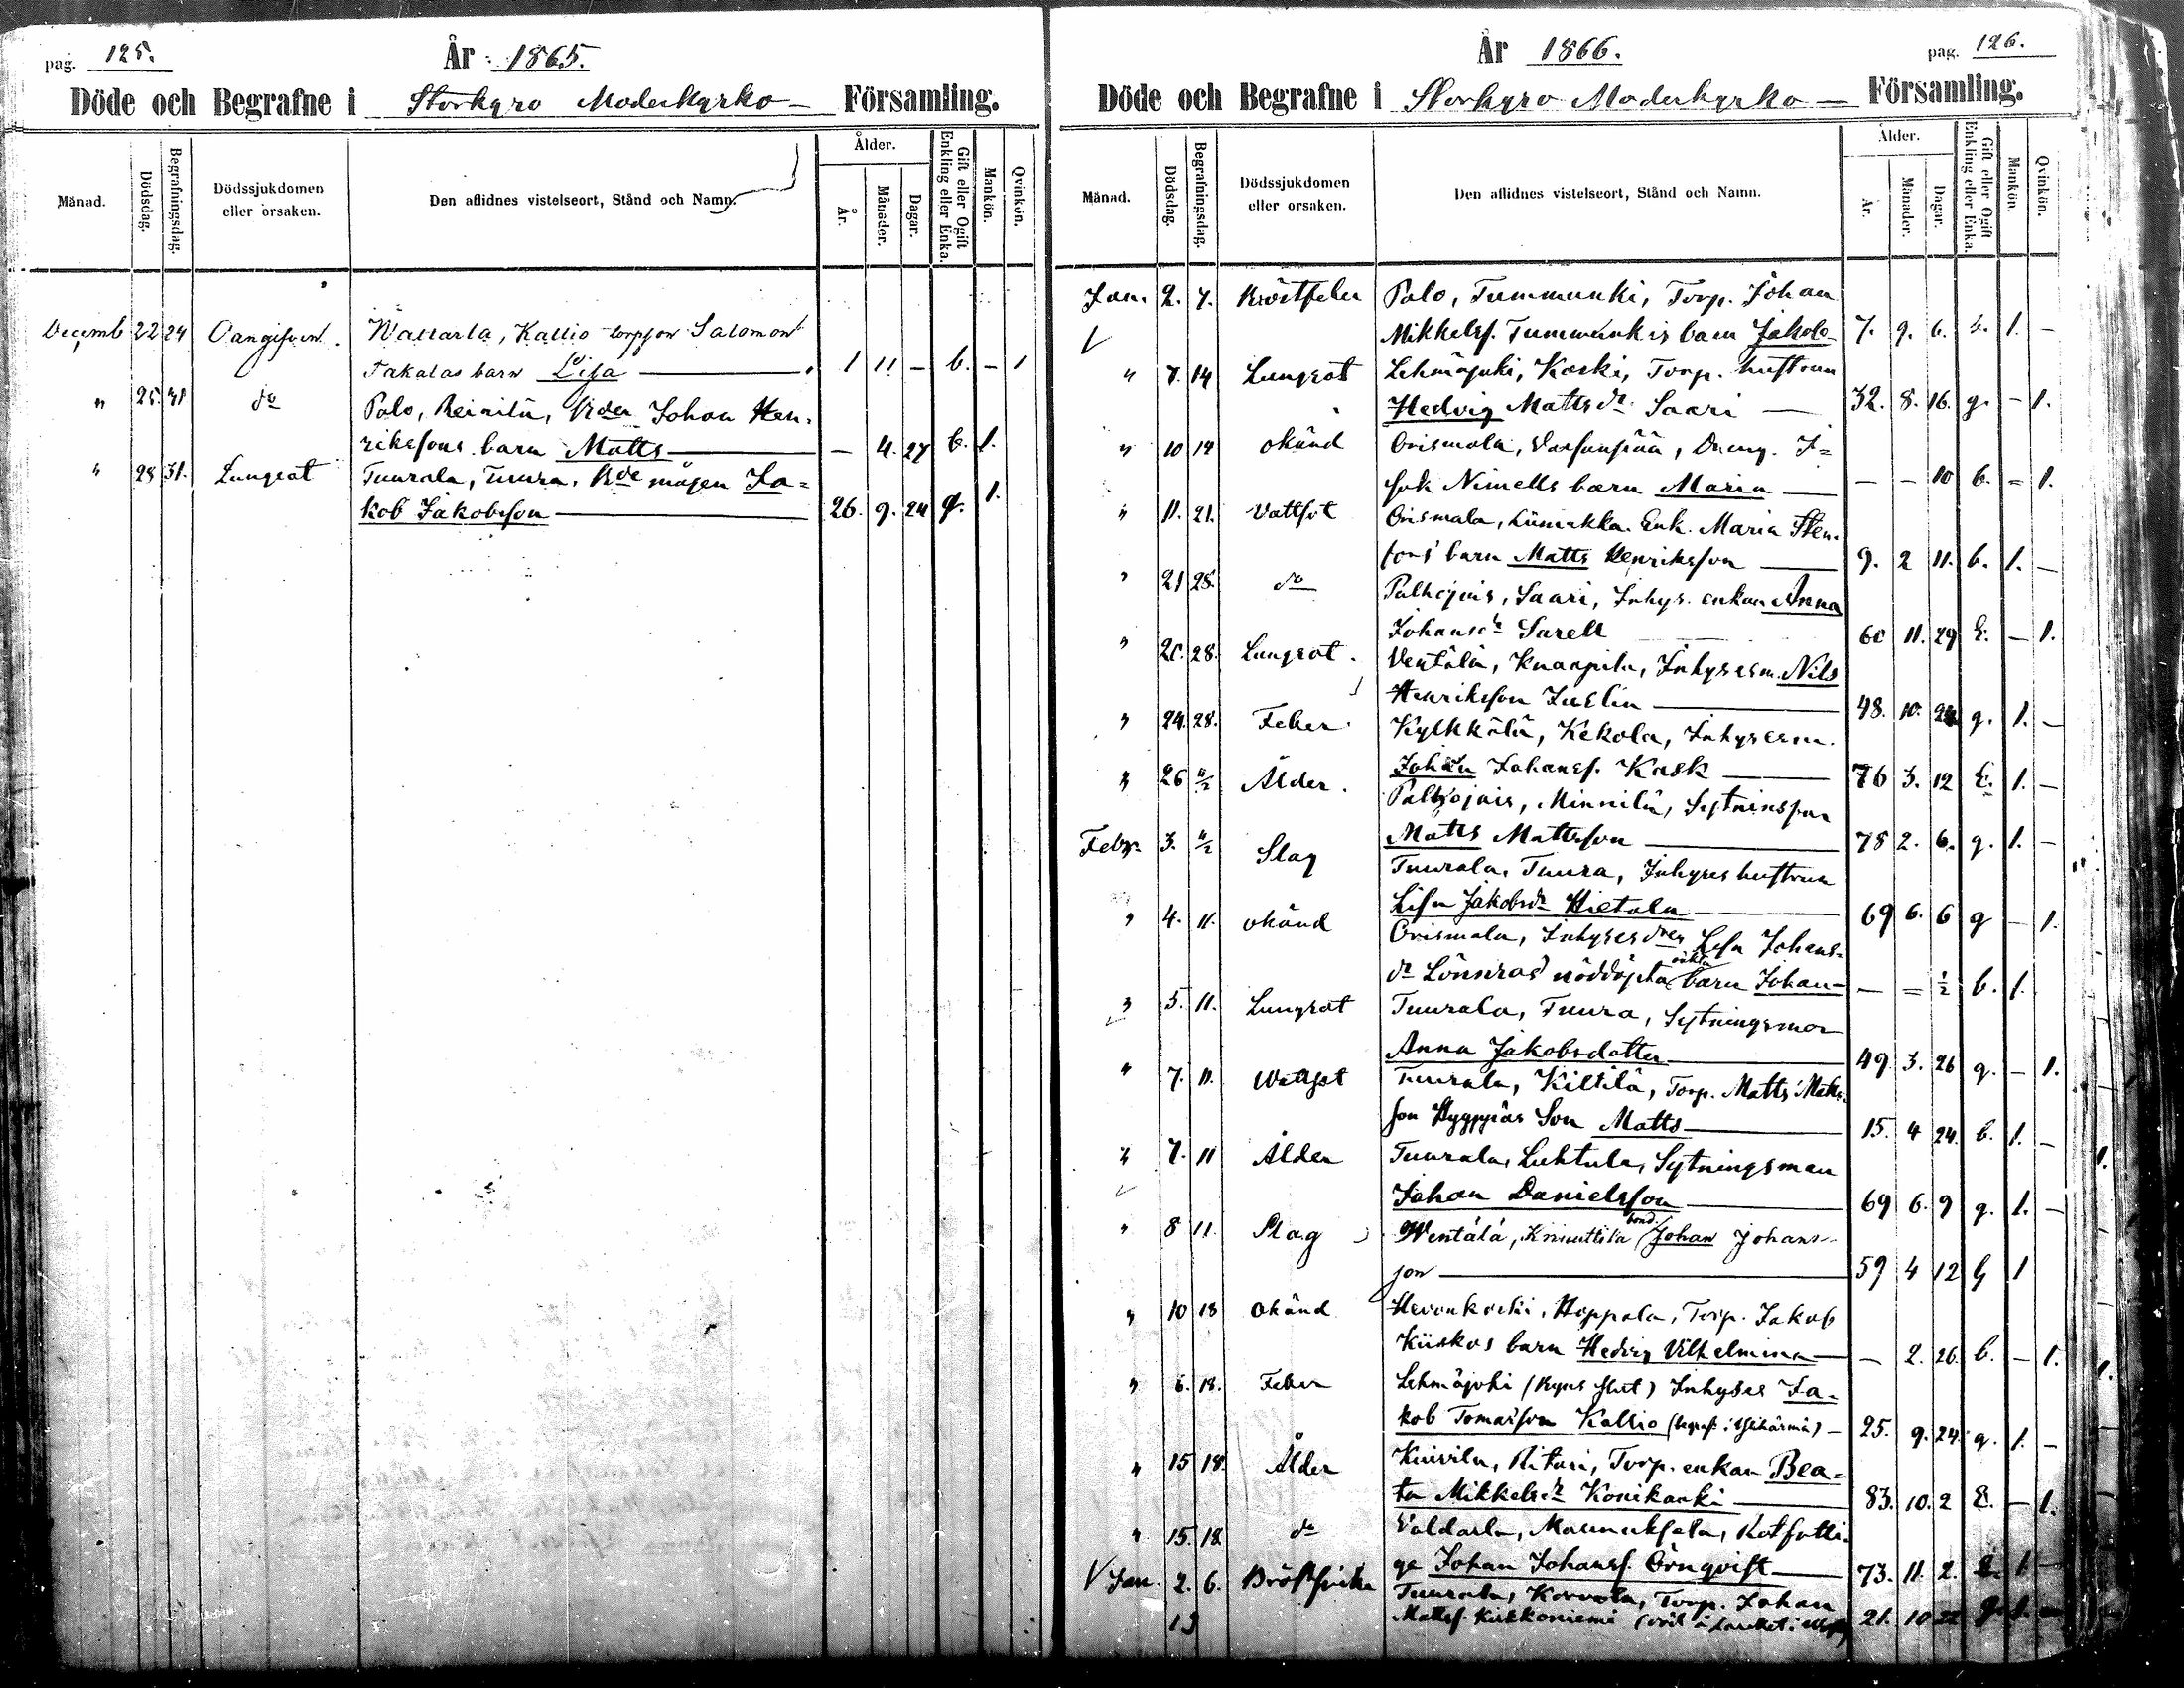 pag. 125.
År 1865.
Döde och Begrafne i Storkyro Moderkyrko- Församling.
Månad.
Dödsdag.
Begrafningsdag.
Dödssjukdomen eller orsaken.
Den aflidnes vistelseort, Stånd och Namn.
Ålder.
År.
Månader.
Dagar.
Gift eller Ogift Enkling eller Enka.
Mankön.
Qvinkön.
Decemb 22 24 Oangifven. Kallio torpson Salomon
Takalas barn Lisa — 1 11 - b. - 1
" 25. 31 do Palo, Reinilä, Johan Hen-
riksons barn Matts — - 4. 27 b. 1.
" 28 31. Lungsot Tuurala, Tuura, mågen Ja-
kob Jakobsson — 26. 9. 24 g. 1.
pag. 126.
År 1866.
Döde och Begrafne i Storkyro Moderkyrko — Församling.
Månad.
Dödsdag.
Begrafningsdag.
Dödssjukdomen eller orsaken.
Den aflidnes vistelseort, Stånd och Namn.
Ålder.
År.
Månader.
Dagar.
Gift eller Ogift Enkling eller Enka.
Mankön.
Qvinkön.
Jan. 2. 7. Bröstfeber Palo, Tummunki, Torp. Johan
Mikkelss. Tummunkis barn Jakob- 7. 9. 6. b. 1. -
" 7. 14 Lungsot Lehmäjoki, Koski, Torp. hustrun
Hedvig Mattsdr Saari — 32. 8. 16. g. - 1.
" 10 14 okänd Orismala, Dreng. I=
sak Nimells barn Maria — - - 10 b. - 1.
" 11. 21. Vattsot Orismala, Liimakka. Enk. Maria Sten-
sons barn Matts Henriksson — 9. 2 11. b. 1. -
" 21 28. do Palhojais, Saari, Inhys. enkan Anna
Johansdr Sarell 60 11. 29 E. - 1.
" 20. 28. Lungsot. Ventälä, Knaapila, Inhysesm. Nils
Henriksson Juslin — 48. 10. g. 1. -
" 24. 28. Feber. Kylkkälä, Kekola, Inhysesm.
Johan Johanss. Kask — 76 3. 12 E. 1. -
" 26 4/2 Ålder. Palhojais, Minnilä,
Matts Mattsson — 78 2. 6. g. 1. -
Febr. 3. 4/2 Slag Tuurala, Tuura, Inhyses hustrun
Lisa Jakobsdr Hietala — 69 6. 6 g - 1.
" 4. 11. okänd Orismala, Lisa Johans-
dr Lönnros' nöddöpta oäkta barn Johan- — = ½ b. 1.
" 5. 11. Lungsot Tuurala, Tuura, Sytningsmor
Anna Jakobsdotter — 49. 3. 26 g. - 1.
" 7. 11. Vattsot Tuurala, Kiltilä, Torp. Matts Matts-
son Hyyppiäs Son Matts — 15. 4 24. b. 1. -
" 7. 11 Ålder Tuurala, Luhtala, Sytningsman
Johan Danielsson — 69 6. 9 g. 1. -
" 8 11. Slag Wentälä, Knuuttila bond. Johan Johans-
son — 59 4 12 G 1
" 10 18 Okänd Hevonkoski, Hoppala, Torp. Jakob
Kiiskos barn Hedvig Vilhelmina — - 2. 26. b. - 1.
" 6. 18. Feber Lehmäjoki Inhyses Ja-
kob Tomasson Kallio — 25. 9. 24. g. 1. -
" 15 18. Ålder Kuivila, Ritari, Torp. enkan Bea-
ta Mikkelsdr Konikarki — 83. 10. 2 E. - 1.
" 15. 18 do Valdarla, Maunuksela, Rotfatti-
ge Johan Johanss. Örnqvist — 73. 11. 2. 1 -
Jan. 2. 6. Tuurala, Korvola, Torp. Johan
13 Mattss. Kirkkoniemi 21. 10 22 g. 1. -